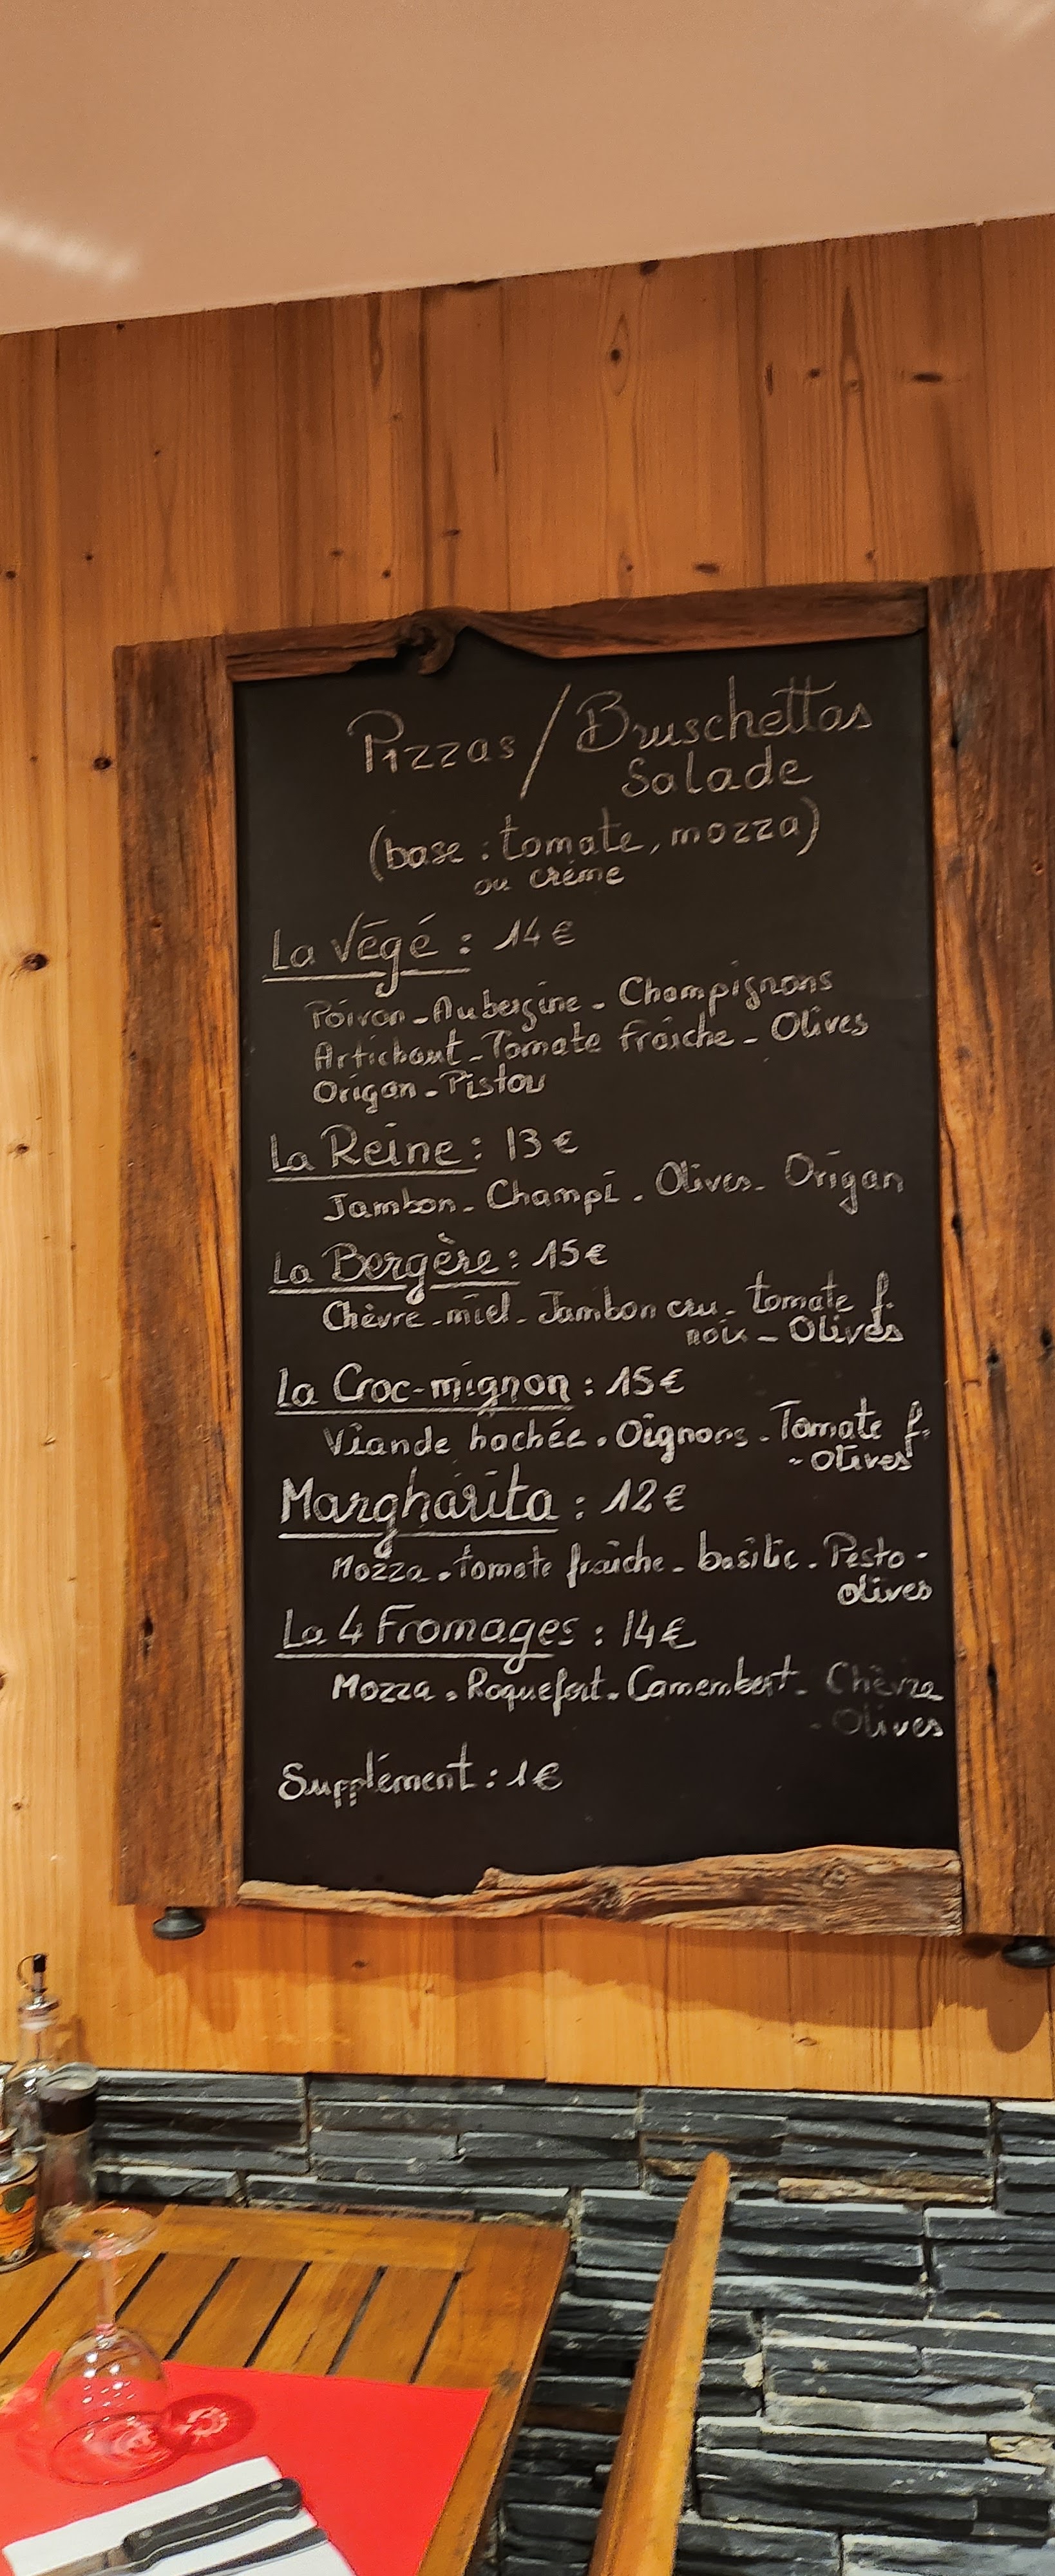 Pizzas / Bruschettas
Salade
(base : tomate, mozza)
ou crème
La Végé : 14€
Poivron - Aubergine - Champignons
Artichaut - Tomate fraîche - Olives
Origan - Pistou
La Reine : 13€
Jambon - Champi - Olives - Origan
La Bergère : 15€
Chèvre - miel - Jambon cru - tomate f.
noix - Olives
La Croc-mignon : 15€
Viande hachée - Oignons - Tomate f.
- Olives
Margharita : 12€
Mozza - tomate fraîche - basilic - Pesto -
olives
La 4 Fromages : 14€
Mozza - Roquefort - Camembert - Chèvre
- Olives
Supplément : 1€